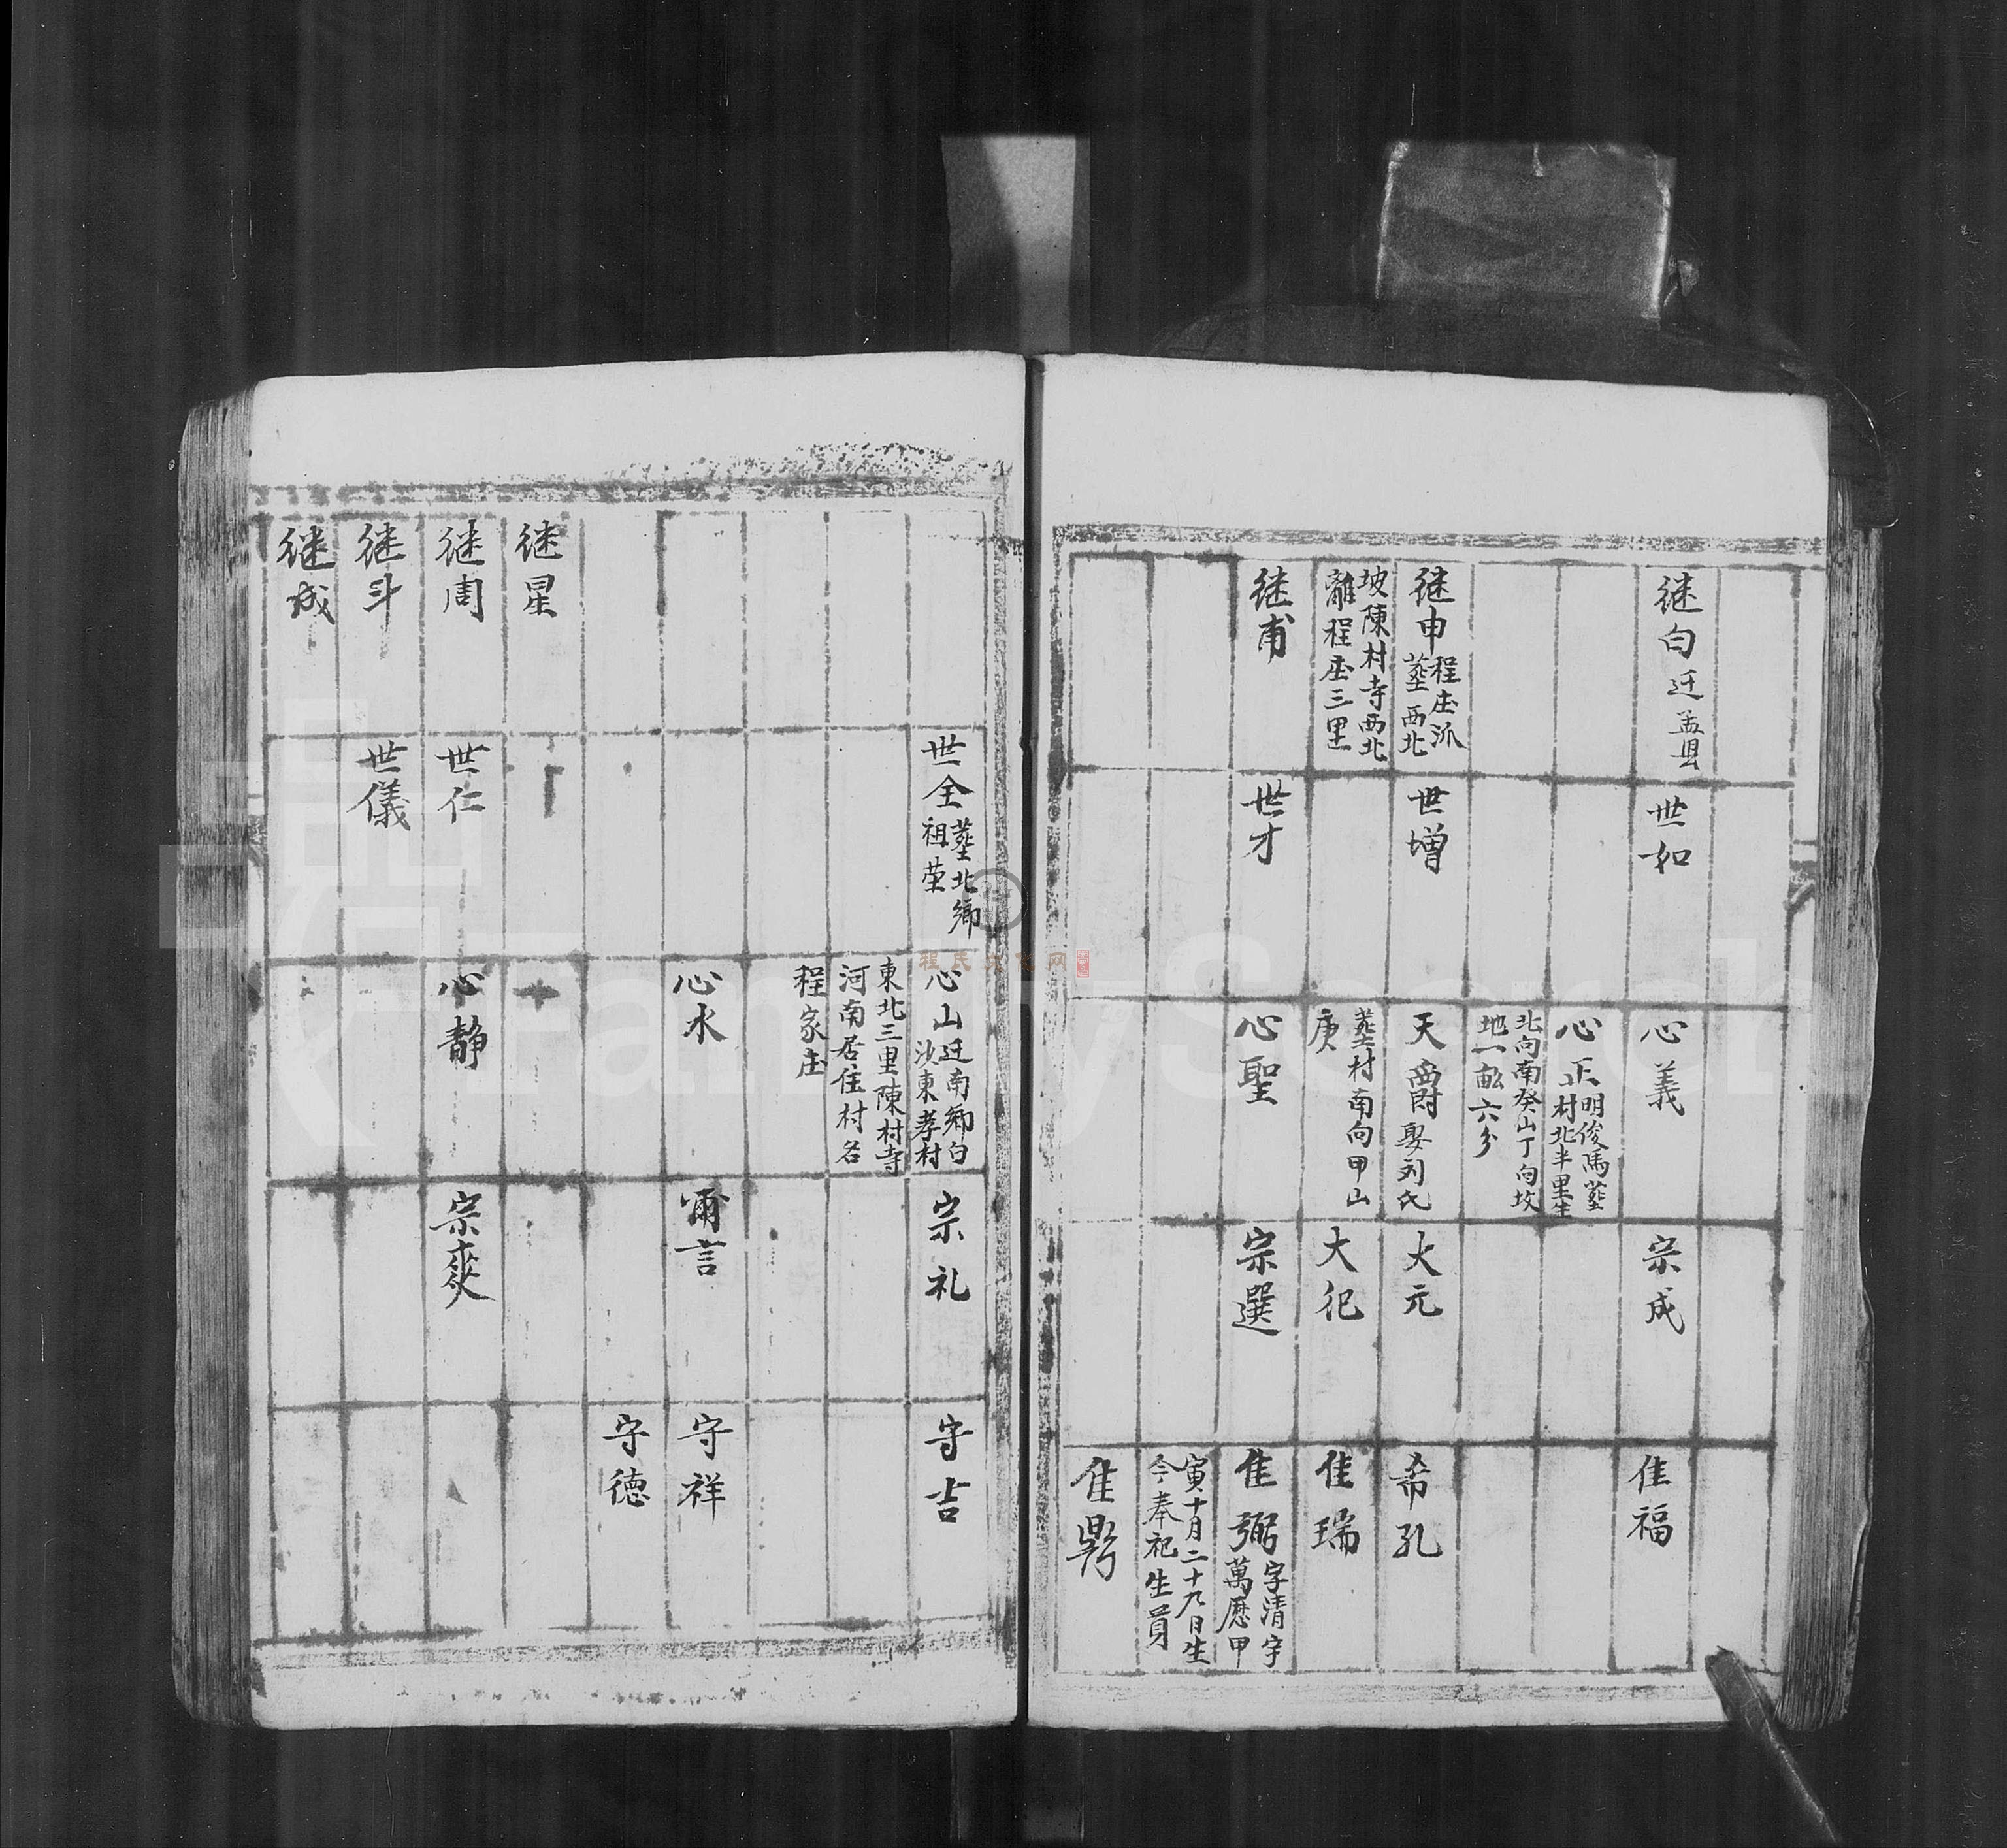 继白 迁盖县
继申 程庄派
塟西北
坡陳村寺西北
離程庄三里
继甫
世如
世增
世才
心義
心正 明俊馬塟
村北半里生
北向南癸山丁向坟
地一畝六分
天爵 娶刘氏
塟村南向甲山
庚
心聖
宗成
大元
大祀
宗選
隹福
希孔
隹瑞
隹弼 字清宇
萬厯甲
寅十月二十九日生
今奉祀生員
隹鼎
继星
继周
继斗
继成
世全 塟北鄉
祖茔
世仁
世儀
心山 迁南鄉白
沙東孝村
東北三里陳村寺
河南居住村名
程家庄
心水
心静
宗礼
爾言
宗爽
守吉
守祥
守德
程氏文化网
FamilySearch